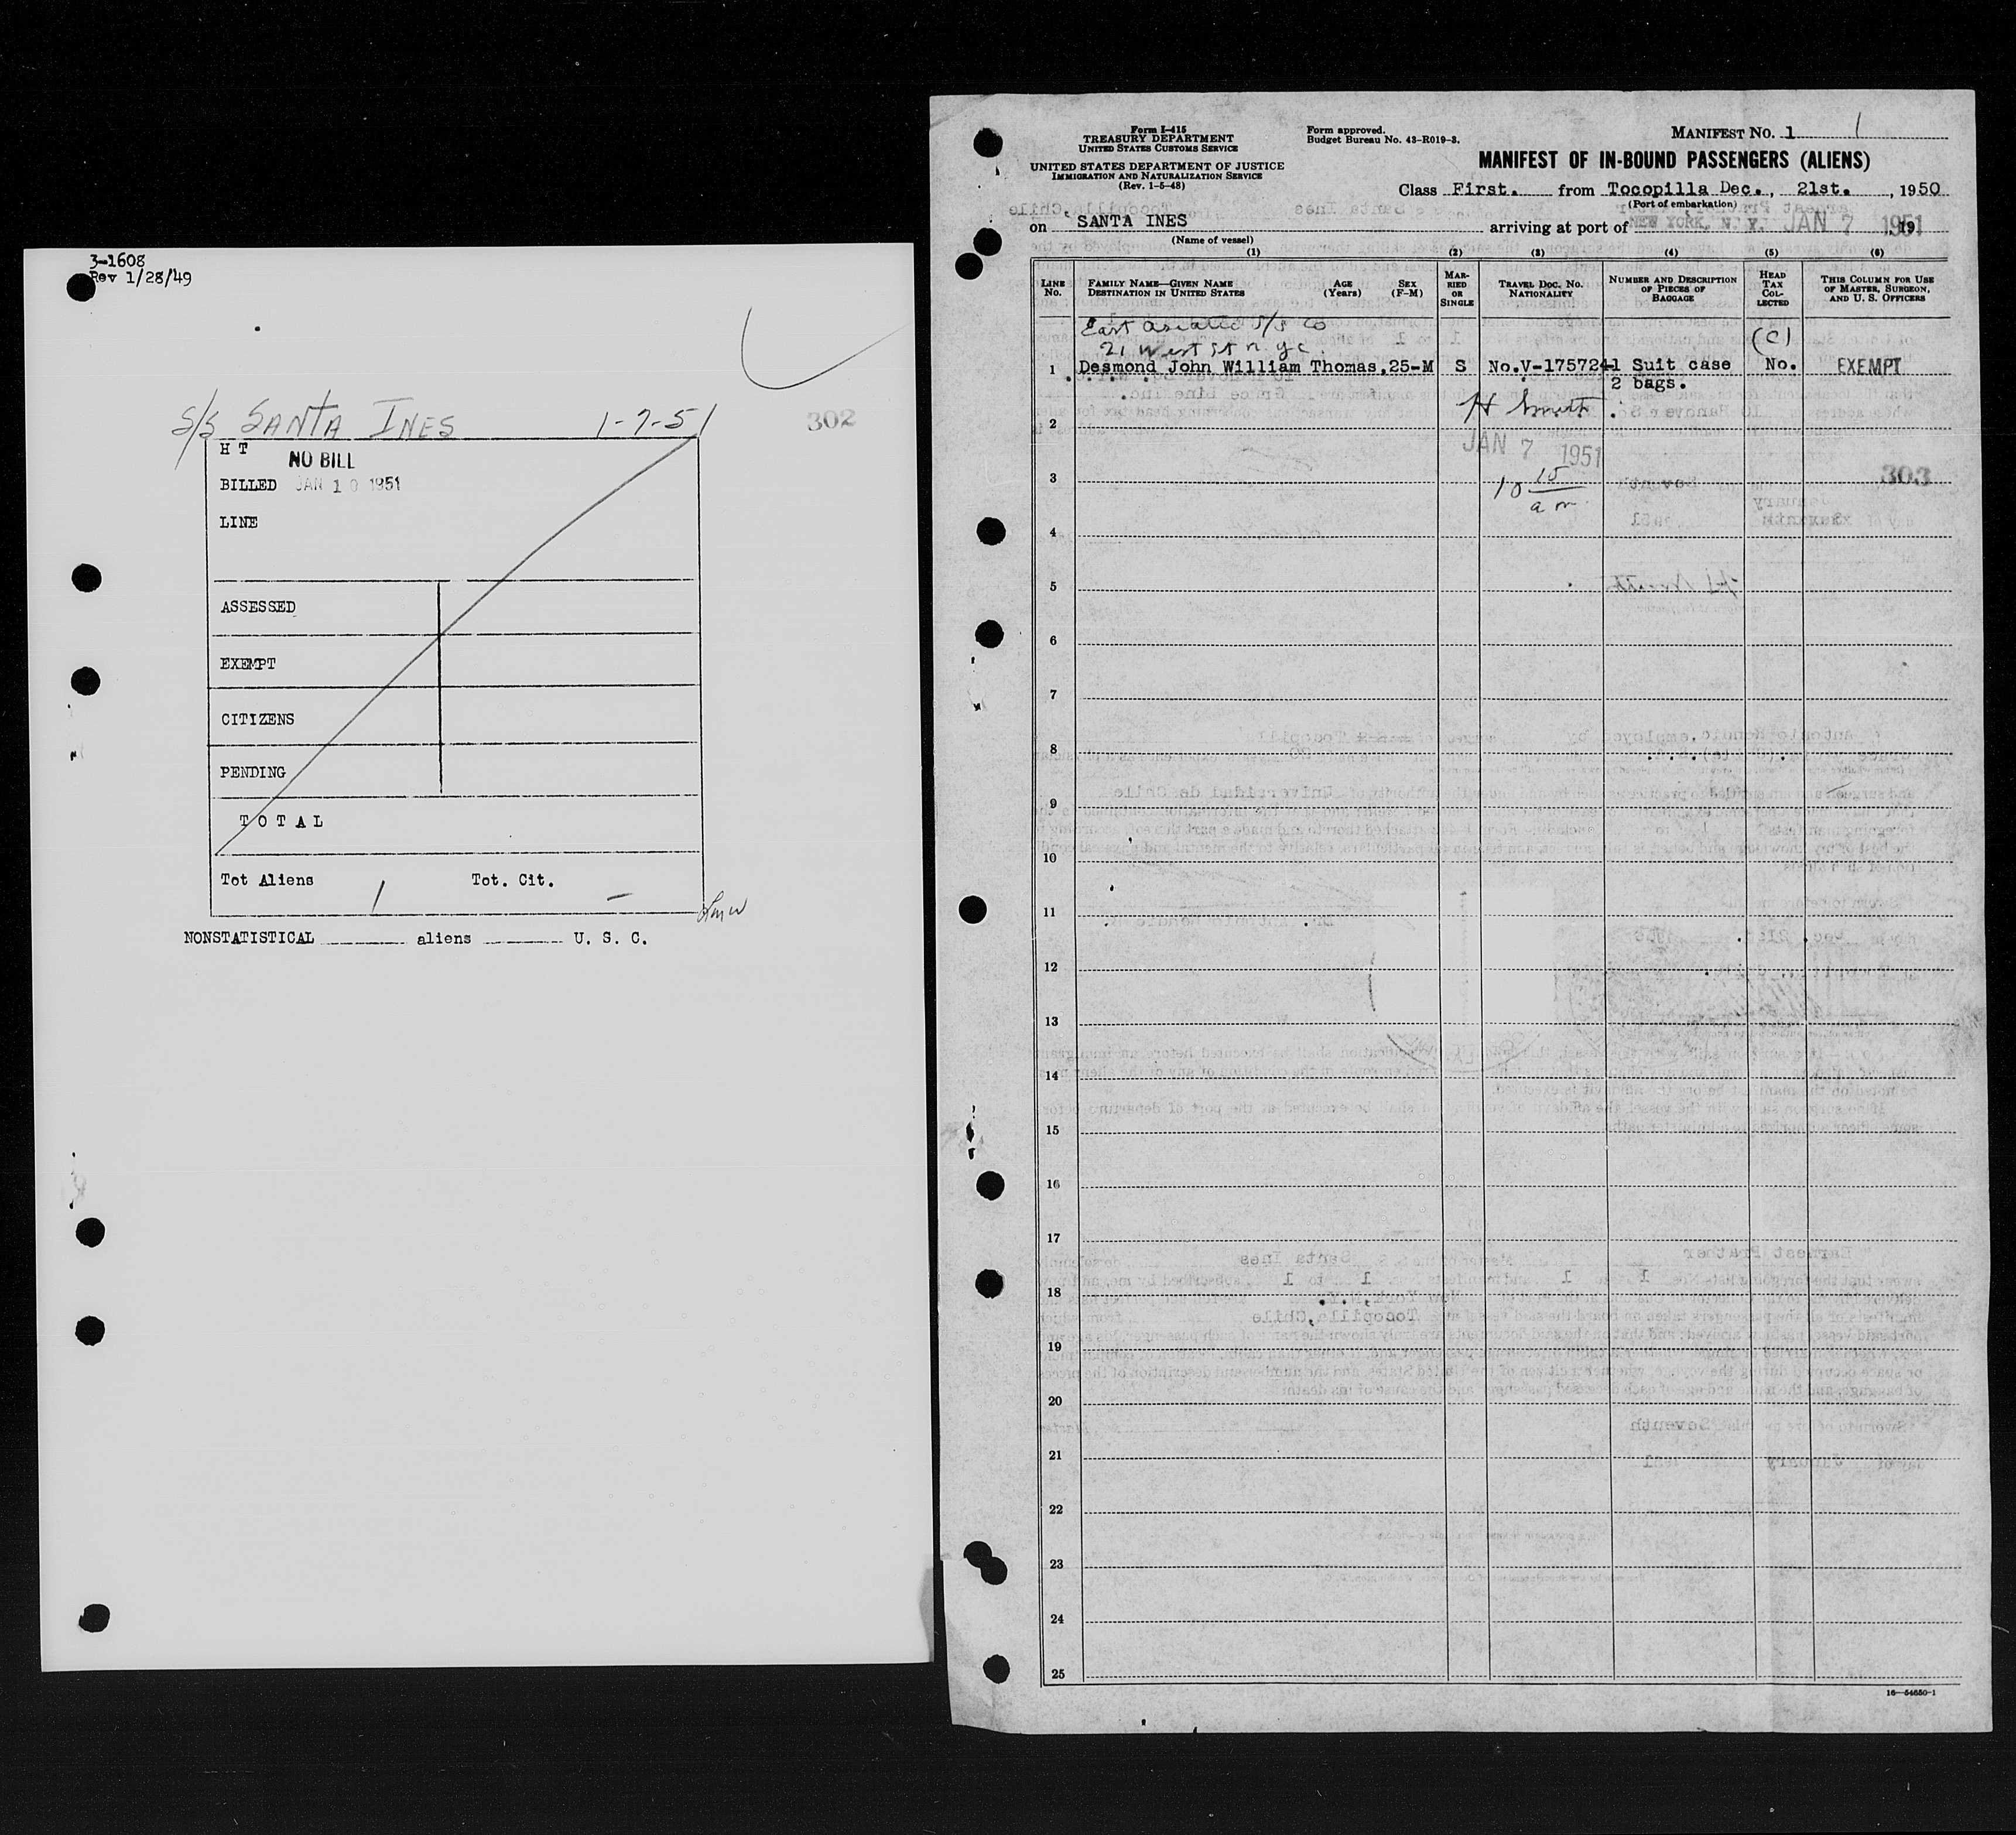 3-1608
Rev 1/28/49
S/S SANTA INES 1-7-51
302
H T
NO BILL
BILLED JAN 10 1951
LINE
ASSESSED
EXEMPT
CITIZENS
PENDING
TOTAL
Tot Aliens 1 Tot. Cit. –
NONSTATISTICAL aliens U. S. C.
Form I-415
TREASURY DEPARTMENT
UNITED STATES CUSTOMS SERVICE
UNITED STATES DEPARTMENT OF JUSTICE
IMMIGRATION AND NATURALIZATION SERVICE
(Rev. 1-5-48)
Form approved.
Budget Bureau No. 43-R019-3.
MANIFEST NO. 1 1
MANIFEST OF IN-BOUND PASSENGERS (ALIENS)
Class First. from Tocopilla Dec., 21st., 1950
(Port of embarkation)
on SANTA INES arriving at port of NEW YORK, N. Y. JAN 7 1951, 19
(Name of vessel)
(1) (2) (3) (4) (5) (6)
LINE NO.
FAMILY NAME—GIVEN NAME
DESTINATION IN UNITED STATES
AGE (Years)
SEX (F-M)
MARRIED OR SINGLE
TRAVEL DOC. NO.
NATIONALITY
NUMBER AND DESCRIPTION OF PIECES OF BAGGAGE
HEAD TAX COLLECTED
THIS COLUMN FOR USE OF MASTER, SURGEON, AND U. S. OFFICERS
East Asiatic S/S Co
21 West St n.y.c. (C)
1 Desmond John William Thomas, 25-M S No.V-1757241 1 Suit case No. EXEMPT
2 bags.
H Smith
2
JAN 7 1951
3
10 15 a m
303
4
5
6
7
8
9
10
11
12
13
14
15
16
17
18
19
20
21
22
23
24
25
16—54650-1